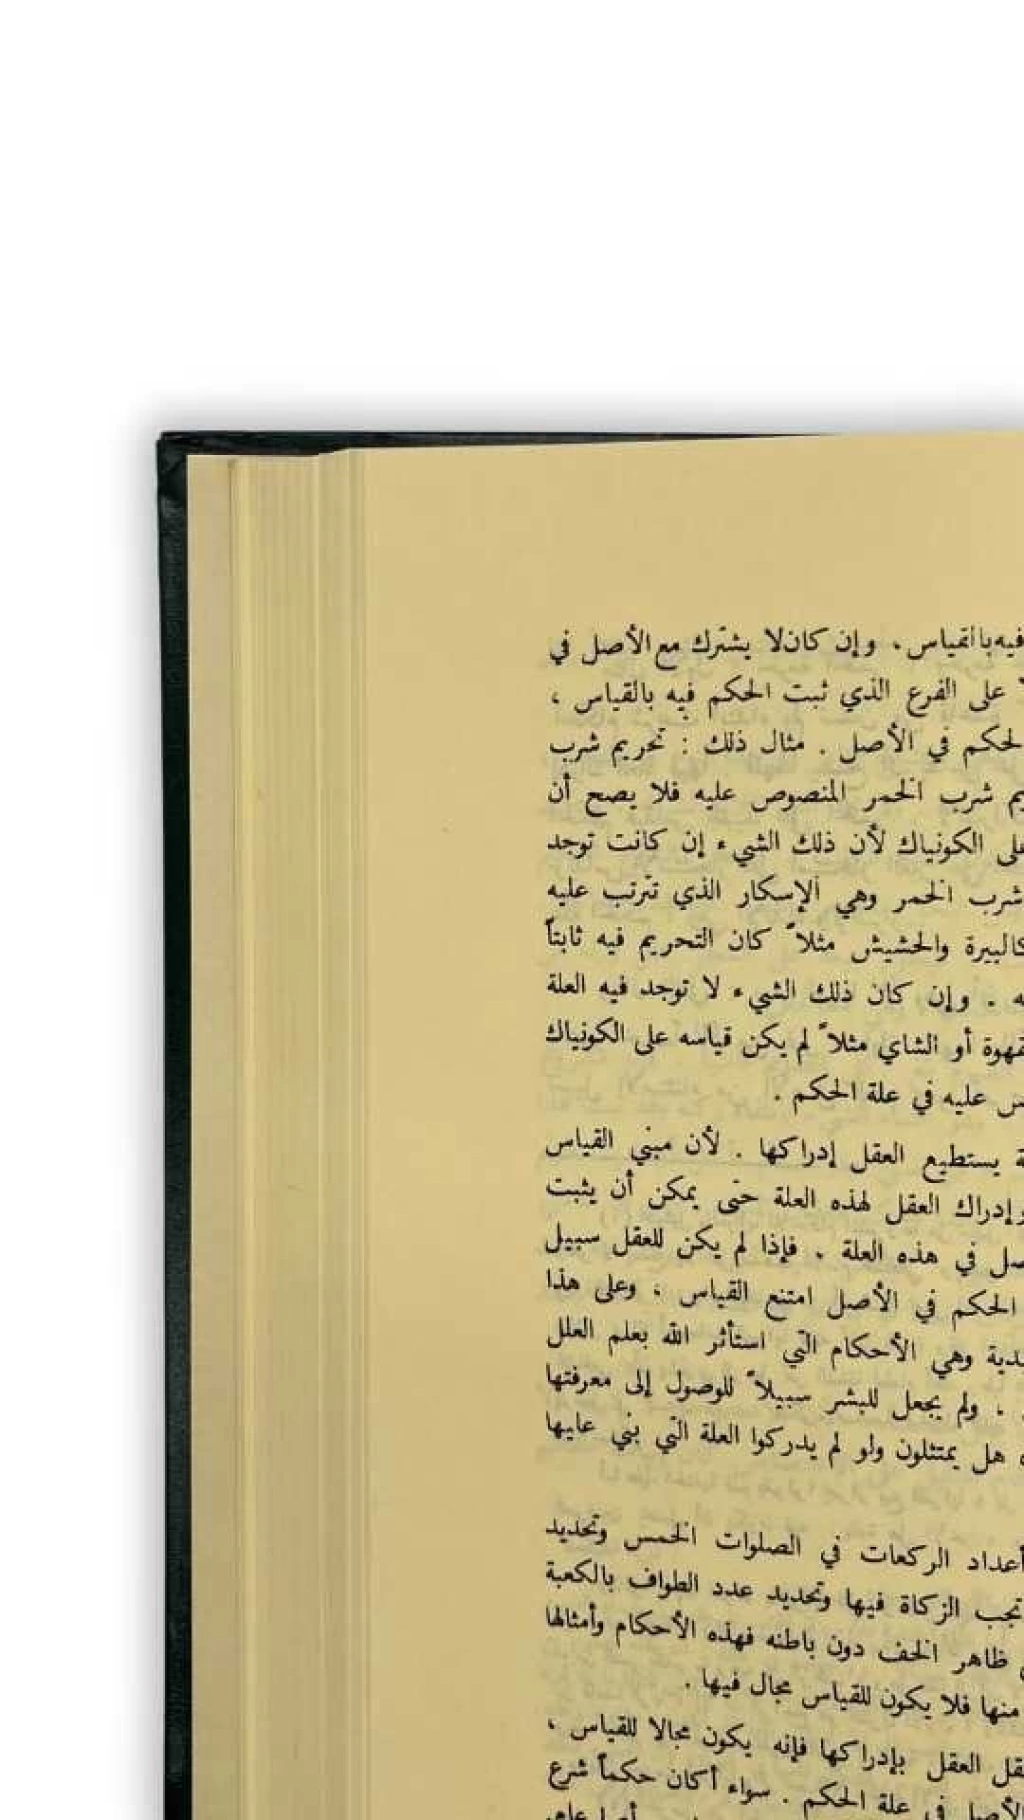 فيه بالقياس، وإن كان لا يشترك مع الأصل في
على الفرع الذي ثبت الحكم فيه بالقياس ،
الحكم في الأصل . مثال ذلك : تحريم شرب
شرب الخمر المنصوص عليه فلا يصح أن
على الكونياك لأن ذلك الشيء إن كانت توجد
شرب الخمر وهي الإسكار الذي تترتب عليه
كالبيرة والحشيش مثلاً كان التحريم فيه ثابتاً
. وإن كان ذلك الشيء لا توجد فيه العلة
قهوة أو الشاي مثلاً لم يكن قياسه على الكونياك
عليه في علة الحكم .
يستطيع العقل إدراكها . لأن مبنى القياس
وإدراك العقل لهذه العلة حتى يمكن أن يثبت
في هذه العلة . فإذا لم يكن للعقل سبيل
الحكم في الأصل امتنع القياس ، وعلى هذا
وهي الأحكام التي استأثر الله بعلم العلل
، ولم يجعل للبشر سبيلاً للوصول إلى معرفتها
هل يمتثلون ولو لم يدركوا العلة التي بني عليها
أعداد الركعات في الصلوات الخمس وتحديد
تجب الزكاة فيها وتحديد عدد الطواف بالكعبة
ظاهر الخف دون باطنه فهذه الأحكام وأمثالها
منها فلا يكون للقياس مجال فيها .
العقل بإدراكها فإنه يكون مجالا للقياس ،
الأصل في علة الحكم . سواء أكان حكماً شرع